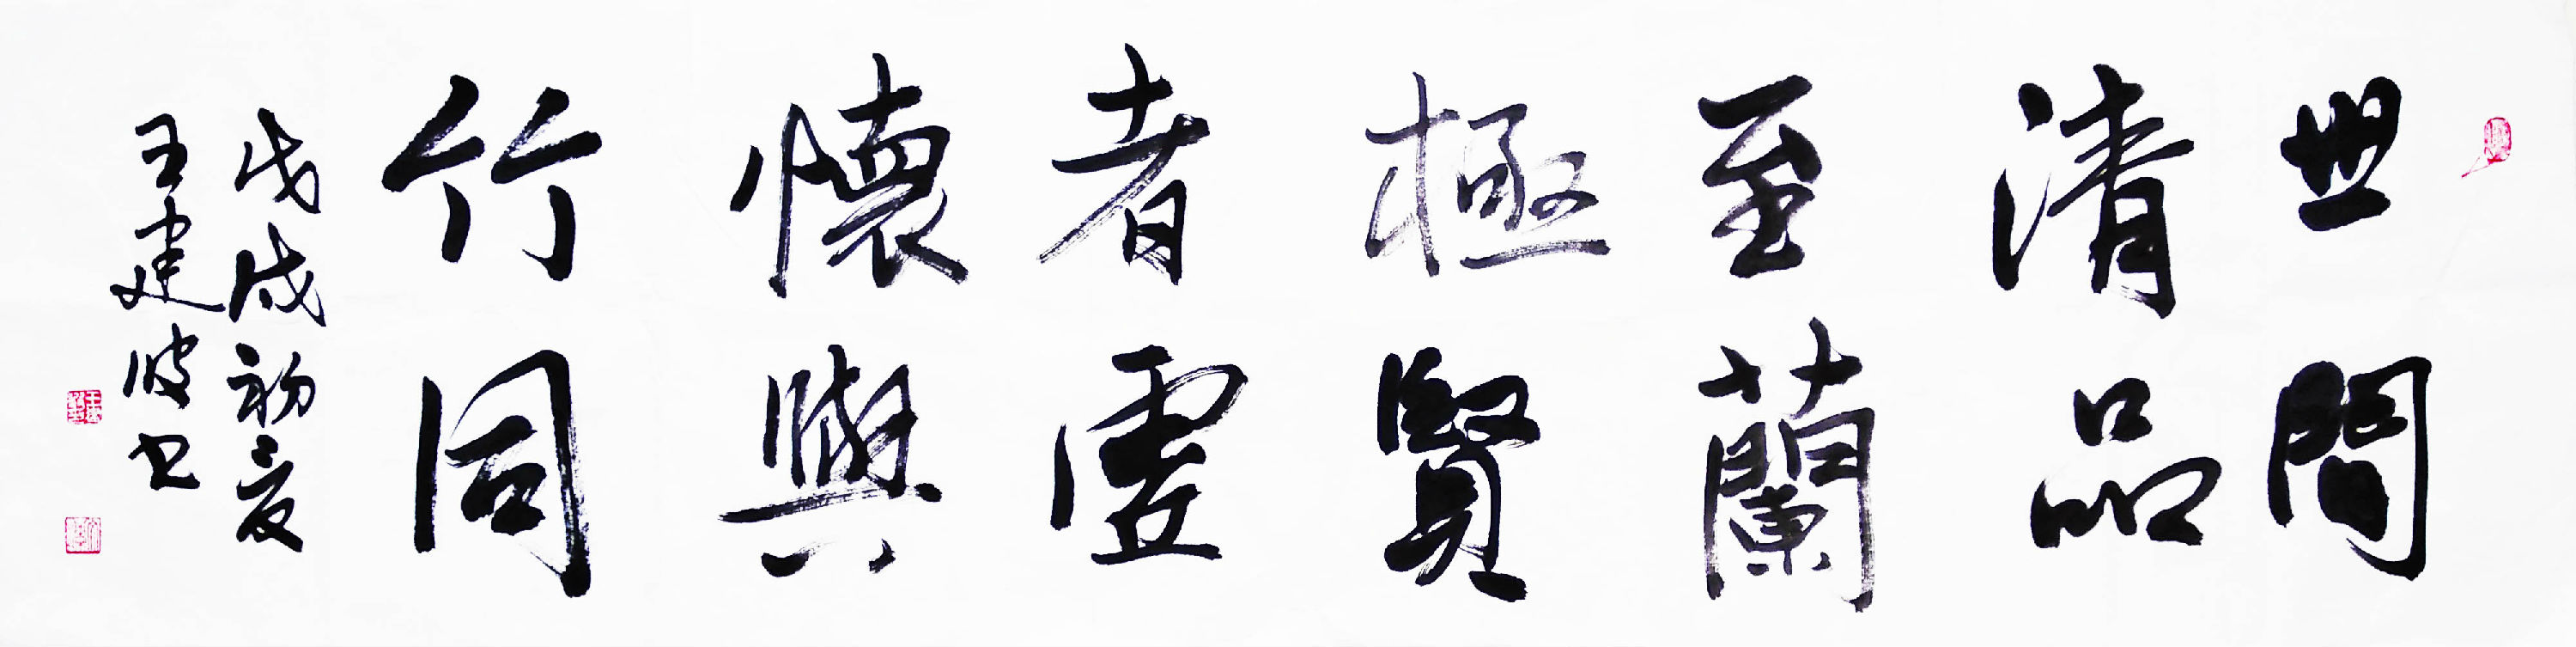 世間
清品
至蘭
極賢
者虛
懷與
竹同
戊戌初夏
王建波书